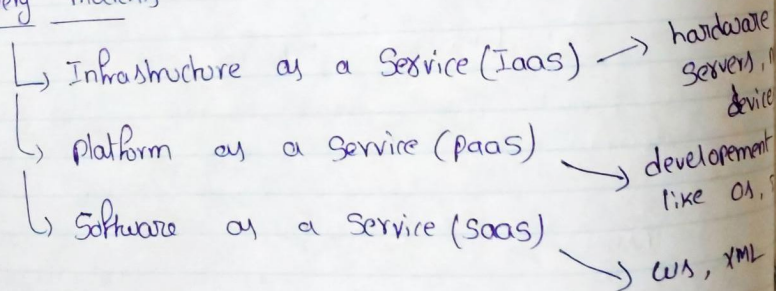 Infrastructure as a Service (Iaas) → hardware
servers,
device
Platform as a Service (paas) → developement
like OS,
Software as a Service (Saas) → WS, XML